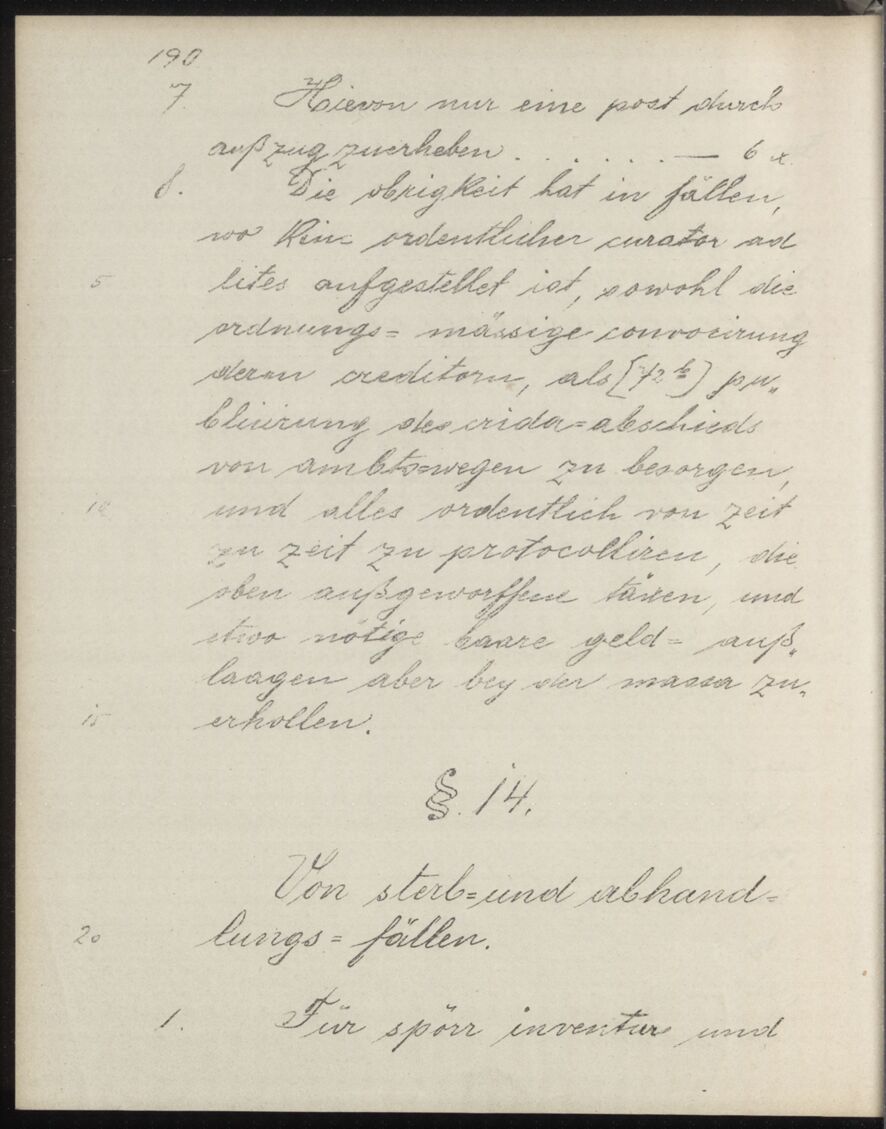 190
7. Hievon nur eine post durch
außzug zuerheben . . . . . . . — 6 x.
8. Die obrigkeit hat in fällen,
wo kein ordentlicher curator ad
5 lites aufgestellet ist, sowohl die
ordnungs= mässige convocirung
deren creditorn, als [72 b] pu„
blicirung des crida=abschieds
von ambts=wegen zu besorgen,
10 und alles ordentlich von zeit
zu zeit zu protocolliren, die
oben außgeworffene taxen, und
etwo nötige baare geld= auß„
laagen aber bey der massa zu„
15 erhollen.
§. 14.
Von sterb=und abhand=
20 lungs= fällen.
1. Für spörr inventur und